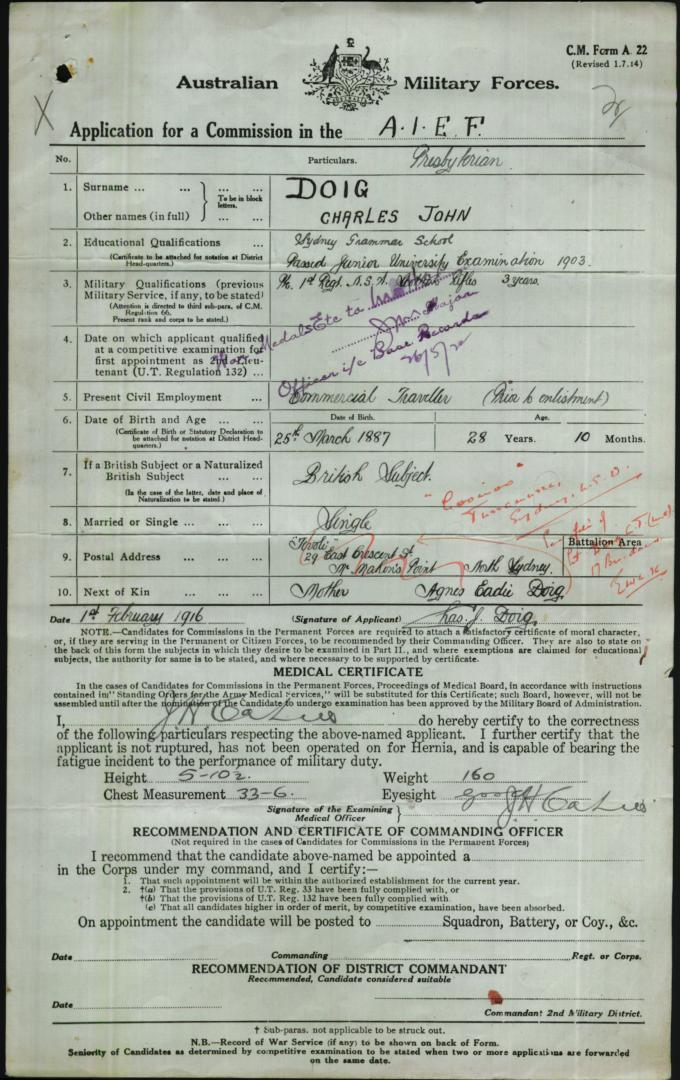 C.M. Form A 22
(Revised 1.7.14)
Australian Military Forces.
X
Application for a Commission in the A.I.E.F.
No.
Particulars. Presbyterian
1. Surname ... ... ... ... DOIG
To be in block letters.
Other names (in full) ... ... CHARLES JOHN
2. Educational Qualifications ... Sydney Grammar School
(Certificate to be attached for notation at District Head-quarters.) Passed Junior University Examination 1903.
3. Military Qualifications (previous Military Service, if any, to be stated) 1st Regt. N.S.W. Rifles 3 years.
(Attention is directed to third sub-para. of C.M. Regulation 66. Present rank and corps to be stated.)
War Medals Etc to
Major
Officer i/c Base Records
26/5/22
4. Date on which applicant qualified at a competitive examination for first appointment as 2nd Lieutenant (U.T. Regulation 132) ...
5. Present Civil Employment ... Commercial Traveller (Prior to enlistment)
6. Date of Birth and Age ... ...
(Certificate of Birth or Statutory Declaration to be attached for notation at District Head-quarters.)
Date of Birth. Age.
25th March 1887 28 Years. 10 Months.
7. If a British Subject or a Naturalized British Subject ... ... British Subject.
(In the case of the latter, date and place of Naturalization to be stated.)
Sydney
8. Married or Single ... ... Single
9. Postal Address ... ... "Tivoli"
29 East Crescent St
McMahon's Point North Sydney.
Battalion Area
10. Next of Kin ... ... Mother Agnes Eadie Doig
Date 1st February 1916 (Signature of Applicant) Chas. J. Doig.
NOTE.—Candidates for Commissions in the Permanent Forces are required to attach a satisfactory certificate of moral character,
or, if they are serving in the Permanent or Citizen Forces, to be recommended by their Commanding Officer. They are also to state
on the back of this form the subjects in which they desire to be examined in Part II., and where exemptions are claimed for educational
subjects, the authority for same is to be stated, and where necessary to be supported by certificate.
MEDICAL CERTIFICATE
In the cases of Candidates for Commissions in the Permanent Forces, Proceedings of Medical Board, in accordance with instructions
contained in "Standing Orders for the Army Medical Services," will be substituted for this Certificate; such Board, however, will not be
assembled until after the nomination of the Candidate to undergo examination has been approved by the Military Board of Administration.
I, do hereby certify to the correctness
of the following particulars respecting the above-named applicant. I further certify that the
applicant is not ruptured, has not been operated on for Hernia, and is capable of bearing the
fatigue incident to the performance of military duty.
Height 5-10½ Weight 160
Chest Measurement 33-6. Eyesight good
Signature of the Examining Medical Officer
RECOMMENDATION AND CERTIFICATE OF COMMANDING OFFICER
(Not required in the cases of Candidates for Commissions in the Permanent Forces)
I recommend that the candidate above-named be appointed a
in the Corps under my command, and I certify:—
1. That such appointment will be within the authorized establishment for the current year.
2. †(a) That the provisions of U.T. Reg. 33 have been fully complied with, or
†(b) That the provisions of U.T. Reg. 132 have been fully complied with.
(c) That all candidates higher in order of merit, by competitive examination, have been absorbed.
On appointment the candidate will be posted to Squadron, Battery, or Coy., &c.
Date Commanding Regt. or Corps.
RECOMMENDATION OF DISTRICT COMMANDANT
Recommended, Candidate considered suitable
Date
Commandant 2nd Military District.
† Sub-paras. not applicable to be struck out.
N.B.—Record of War Service (if any) to be shown on back of Form.
Seniority of Candidates as determined by competitive examination to be stated when two or more applications are forwarded
on the same date.